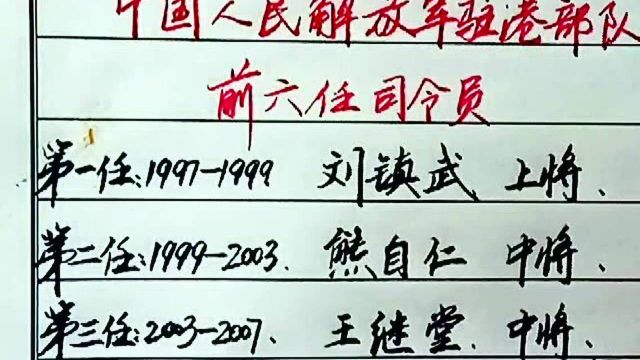 中国人民解放军驻港部队
前六任司令员
第一任:1997-1999 刘镇武 上将、
第二任:1999-2003、熊自仁 中将、
第三任:2003-2007、王继堂、中将、